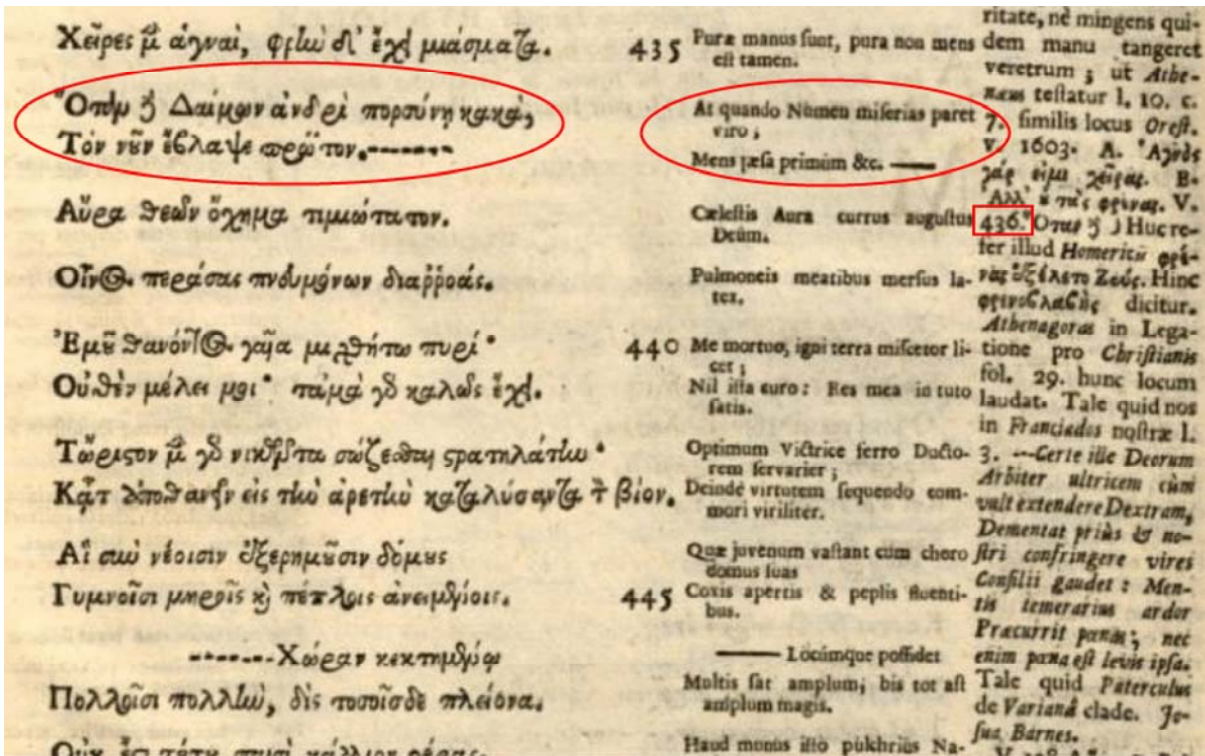 Χεῖρες μὲν ἁγναὶ, φρὴν δ' ἔχει μιάσματα.
Ὅταν δὲ Δαίμων ἀνδρὶ πορσύνῃ κακὰ,
Τὸν νοῦν ἔβλαψε πρῶτον.-------
Αὔρα θεῶν ὄχημα τιμιώτατον.
Οἶνος περάσας πνευμόνων διαῤῥοάς.
Ἐμοῦ θανόντος γαῖα μιχθήτω πυρί·
Οὐθὲν μέλει μοι· τἀμὰ γὰρ καλῶς ἔχει.
Τὤριστον μὲν γὰρ νικῶντα σώζεσθαι στρατηλάτην·
Κᾆτ' ἀποθανεῖν εἰς τὴν ἀρετὴν καταλύσαντα τὸν βίον.
Αἳ σὺν νέοισιν ἐξερημοῦσιν δόμους
Γυμνοῖσι μηροῖς καὶ πέπλοις ἀνειμένοις.
-------Χώραν κεκτημένῳ
Πολλοῖσι πολλὴν, δὶς τοσοῖσδε πλείονα.
435 Puræ manus sunt, pura non mens
est tamen.
At quando Numen miserias paret
viro;
Mens læsa primùm &c. ——
Cælestis Aura currus augustus
Deûm.
Pulmoneis meatibus mersus la-
tex.
440 Me mortuo, igni terra miscetor li-
cet;
Nil ista curo: Res mea in tuto
satis.
Optimum Victrice ferro Ducto-
rem servarier;
Deinde virtutem sequendo com-
mori viriliter.
Quæ juvenum vastant cum choro
domus suas
445 Coxis apertis & peplis fluenti-
bus.
—— Locúmque possidet
Multis sat amplum; bis tot ast
amplum magis.
Haud monus isto pulchrius Na-
ritate, nè mingens qui-
dem manu tangeret
veretrum; ut Athe-
næus testatur l. 10. c.
7. similis locus Orest.
V. 1603. A. Ἁγνὸς
γάρ εἰμι χεῖρας. B.
Ἀλλ' οὐ τὰς φρένας. V.
436. Ὅταν δὲ ) Huc re-
fer illud Homericũ φρέ-
νας ἐξέλετο Ζεύς. Hinc
φρενοβλαβὴς dicitur.
Athenagoras in Lega-
tione pro Christianis
fol. 29. hunc locum
laudat. Tale quid nos
in Franciados nostræ l.
3. --Certe ille Deorum
Arbiter ultricem cùm
vult extendere Dextram,
Dementat priùs & no-
stri confringere vires
Consilii gaudet: Men-
tis temerarius ardor
Præcurrit pœnas; nec
enim pœna est levis ipsa.
Tale quid Paterculus
de Varianâ clade. Jo-
sua Barnes.